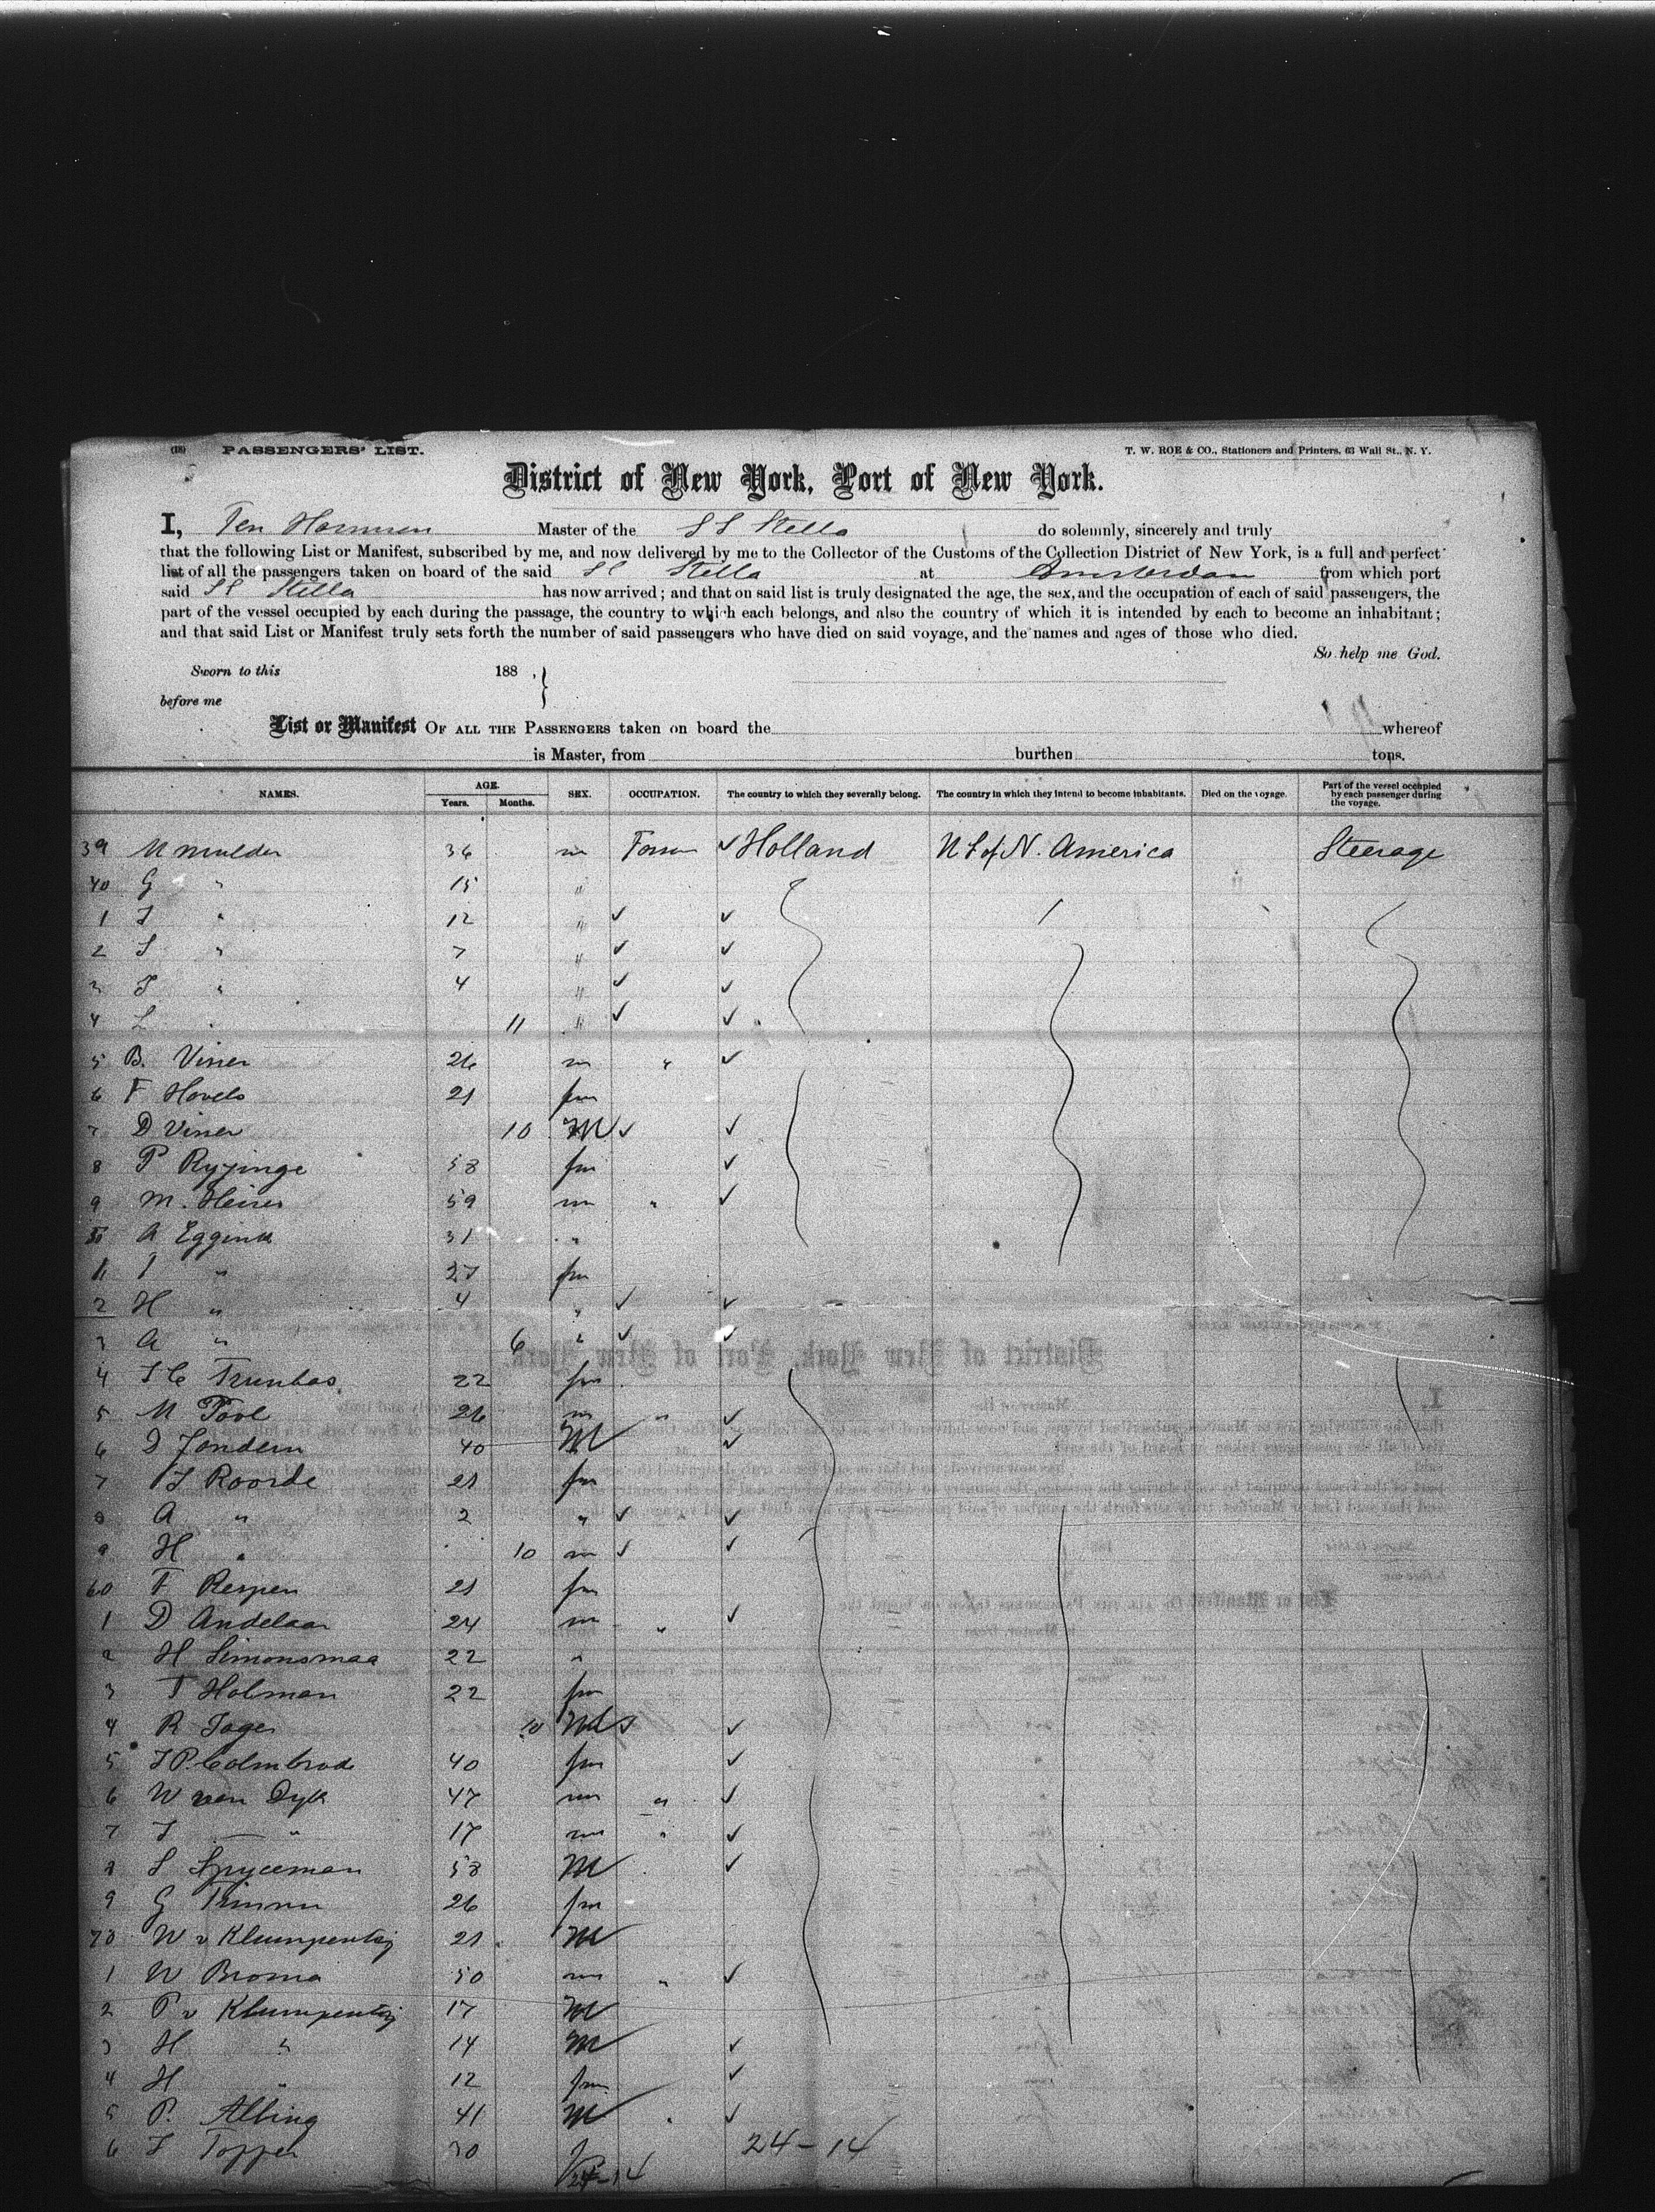 (18) PASSENGERS' LIST. T. W. ROE & CO., Stationers and Printers, 63 Wall St., N. Y.
District of New York, Port of New York.
I, Ten Harmsen Master of the SS Stella do solemnly, sincerely and truly
that the following List or Manifest, subscribed by me, and now delivered by me to the Collector of the Customs of the Collection District of New York, is a full and perfect
list of all the passengers taken on board of the said SS Stella at Amsterdam from which port
said SS Stella has now arrived; and that on said list is truly designated the age, the sex, and the occupation of each of said passengers, the
part of the vessel occupied by each during the passage, the country to which each belongs, and also the country of which it is intended by each to become an inhabitant;
and that said List or Manifest truly sets forth the number of said passengers who have died on said voyage, and the names and ages of those who died.
So help me God.
Sworn to this 188 ,
before me
List or Manifest OF ALL THE PASSENGERS taken on board the whereof
is Master, from burthen tons.
NAMES. AGE. Years. Months. SEX. OCCUPATION. The country to which they severally belong. The country in which they intend to become inhabitants. Died on the voyage. Part of the vessel occupied by each passenger during the voyage.
39 M Mulder 36 m Farmer Holland U S of N. America Steerage
40 G " 15 "
1 " 12 "
2 " 7 "
3 " 4 "
4 L " 11 "
5 B. Visser 26 m "
6 F Hovels 21 fm
7 D Visser 10 M
8 P Ryzinge 58 fm
9 M. Heires 59 m "
50 A Eggink 31 "
1 " 27 fm
2 H " 4 "
3 A " 6 "
4 22 fm
5 M Pool 26 m "
6 D 40 M
7 Roorde 21 fm
8 A " 2 "
9 H " 10 m
60 F 21 fm
1 D Andelaar 24 m "
2 H Simonsmaa 22 "
3 T Holman 22 fm
4 R 10
5 40 fm
6 W van Dyk 47 m "
7 " 17 m "
8 S Spyceman 58 M
9 G 26 fm
70 W v Klumpentsj 21 M
1 W Broma 50 m "
2 P v Klumpentsj 17 M
3 H " 14 M
4 H " 12 fm
5 P. Albing 41 M "
6 Topper 30
24-14
24-14